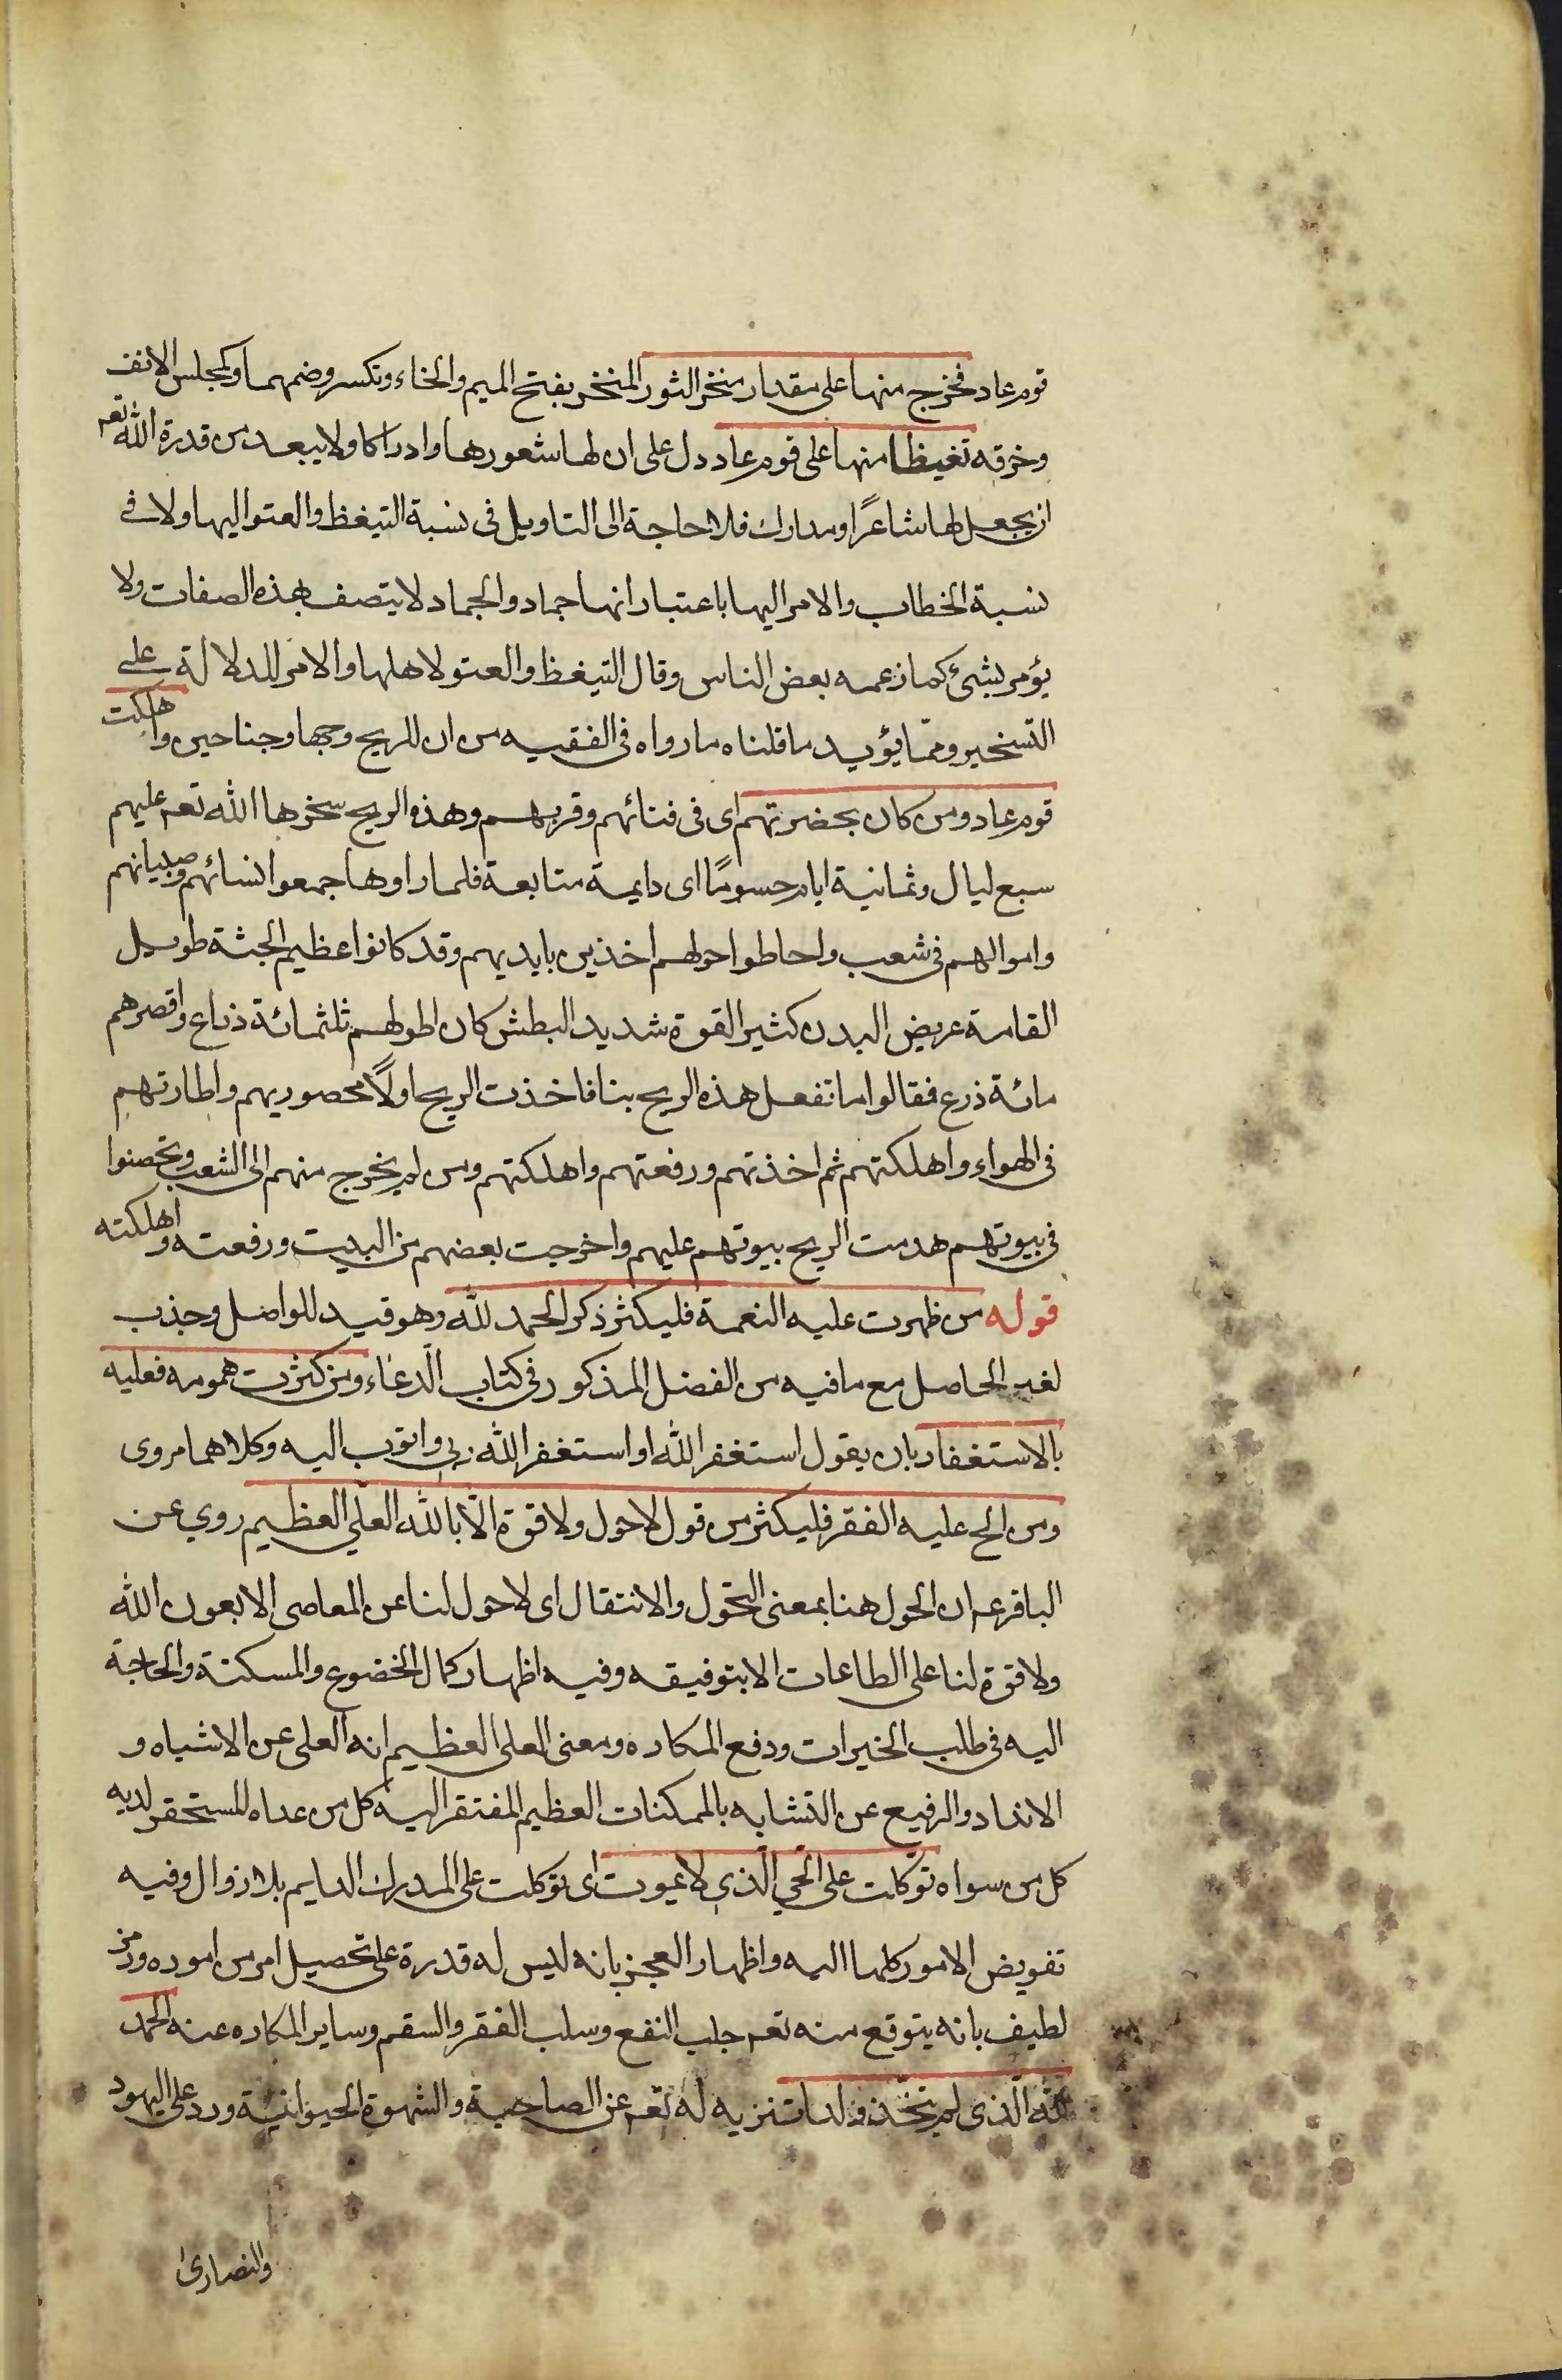 قوم عاد فخرج منها على مقدار منخر الثور المنخر بفتح الميم والخاء وتكسر وضمهما وكمجلس الانف
وخرقه تغيظا منها على قوم عاد دل على ان لها شعورها وادراكا ولا يبعد من قدرة الله تعم
ان يجعل لها شاعرًا ومدارك فلا حاجة الى التاويل في نسبة التيغظ والعتو اليها ولا في
نسبة الخطاب والامر اليها باعتبار انها جماد والجماد لا يتصف بهذه الصفات ولا
يؤمر بشئ كما زعمه بعض الناس وقال التيغظ والعتو لاهلها والامر للدلالة على
التسخير وممّا يؤيد ما قلناه ما رواه في الفقيه من ان للريح وجها وجناحين واهلكت
قوم عاد ومن كان بحضرتهم اى في فنائهم وقربهم وهذه الريح سخرها الله تعم عليهم
سبع ليال وثمانية ايام حسومًا اى دايمة متابعة فلما راوها جمعوا نسائهم وصبيانهم
واموالهم في شعب واحاطوا حولهم اخذين بايديهم وقد كانوا عظيم الجثة طويل
القامة عريض البدن كثير القوة شديد البطش كان اطولهم ثلثمائة ذراع واقصرهم
مائة ذرع فقالوا ما تفعل هذه الريح بنا فاخذت الريح اولًا محصوريهم واطارتهم
في الهواء واهلكتهم ثم اخذتهم ورفعتهم واهلكتهم ومن لم يخرج منهم الى الشعب وتحصنوا
في بيوتهم هدمت الريح بيوتهم عليهم واخرجت بعضهم من البيت ورفعته واهلكته
قوله من ظهرت عليه النعمة فليكثر ذكر الحمد للّه وهو قيد للواصل وجذب
لغير الحاصل مع ما فيه من الفضل المذكور في كتاب الّدعاء ومن كثرت همومه فعليه
بالاستغفار بان يقول استغفر الله او استغفر الله ربي واتوب اليه وكلاهما مروى
ومن الح عليه الفقر فليكثر من قول لا حول ولا قوة الّا بالله العلّي العظيم روي عن
الباقر عم ان الحول هنا بمعنى التحّول والانتقال اى لا حول لنا عن المعاصى الا بعون الله
ولا قوة لنا على الطاعات الا بتوفيقه وفيه اظهار كمال الخضوع والمسكنة والحاجة
اليه في طلب الخيرات ودفع المكاره ومعنى العلى العظيم انه العلى عن الاشباه و
الانداد والرفيع عن التشابه بالممكنات العظيم المفتقر اليه كل من عداه المستحقر لديه
كل من سواه توّكلت على الحّي الّذي لا يموت اى توكلت على المدرك الدايم بلا زوال وفيه
تفويض الامور كلها اليه واظهار العجز بانه ليس له قدرة على تحصيل امر من اموره ورمز
لطيف بانه يتوقع منه تعم جلب النفع وسلب الفقر والسقم وساير المكاره عنه الحمد
للّه الّذى لم يتخّذ ولدا تنزيه له تعم عن الصاحبة والشهوة الحيوانيّة ورد على اليهود
والنصارى